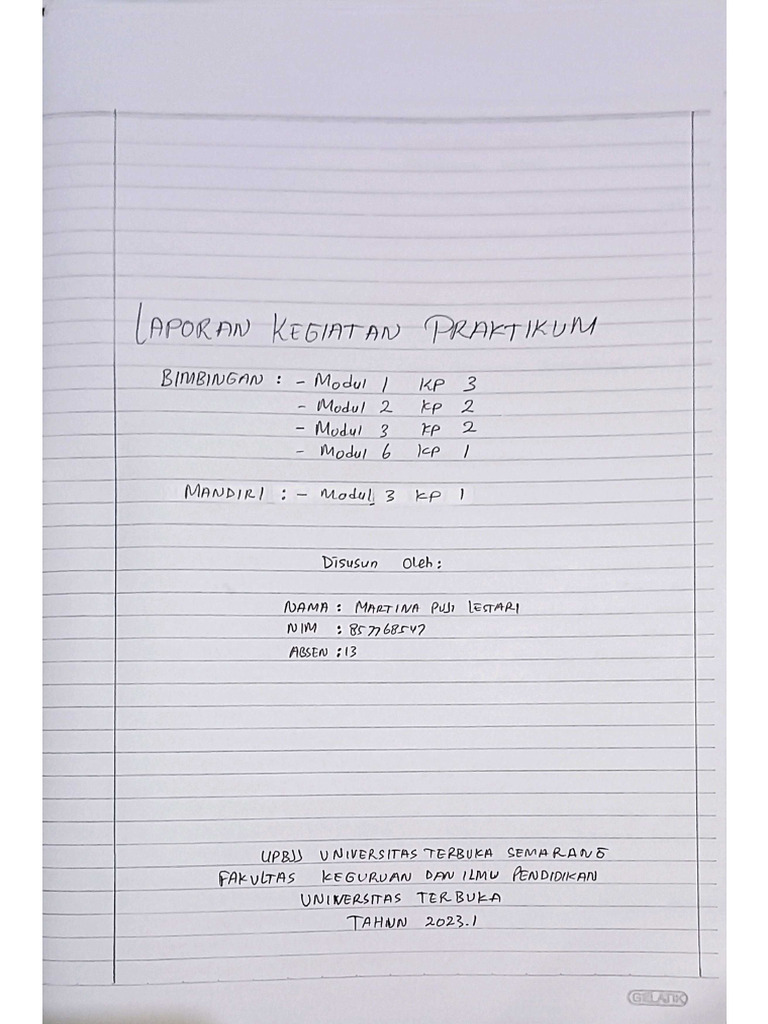 LAPORAN KEGIATAN PRAKTIKUM
BIMBINGAN : - Modul 1 KP 3
- Modul 2 KP 2
- Modul 3 KP 2
- Modul 6 KP 1
MANDIRI : - Modul 3 KP 1
Disusun Oleh :
NAMA : MARTINA PUJI LESTARI
NIM : 857768547
ABSEN : 13
UPBJJ UNIVERSITAS TERBUKA SEMARANG
FAKULTAS KEGURUAN DAN ILMU PENDIDIKAN
UNIVERSITAS TERBUKA
TAHUN 2023.1
GELATIK